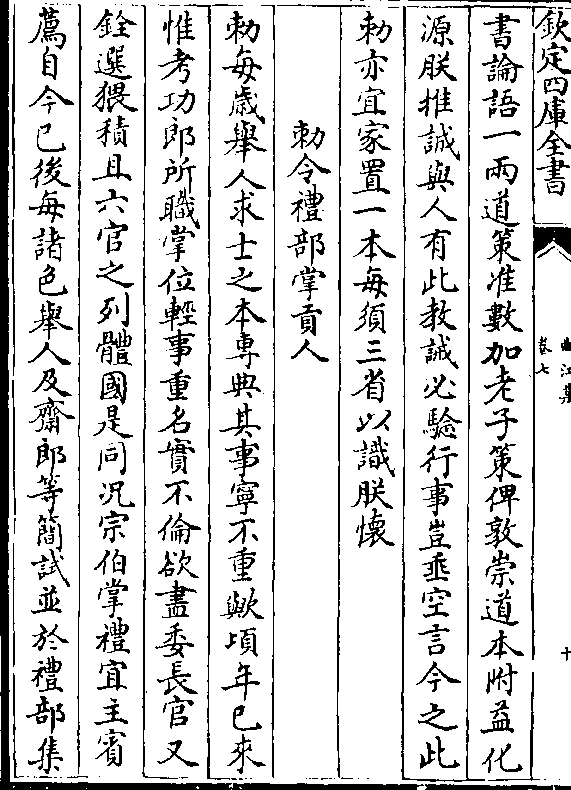 欽定四庫全書
曲江集
卷七
十
書論語一兩道策准數加老子策俾敦崇道本附益化
源朕推誠與人有此教誡必驗行事豈垂空言今之此
勅亦宜家置一本每須三省以識朕懷
勅令禮部掌貢人
勅每歲舉人求士之本專典其事寧不重歟頃年已來
惟考功郎所職掌位輕事重名實不倫欲盡委長官又
銓選猥積且六官之列體國是同況宗伯掌禮宜主賓
薦自今已後每諸色舉人及齋郎等簡試並於禮部集